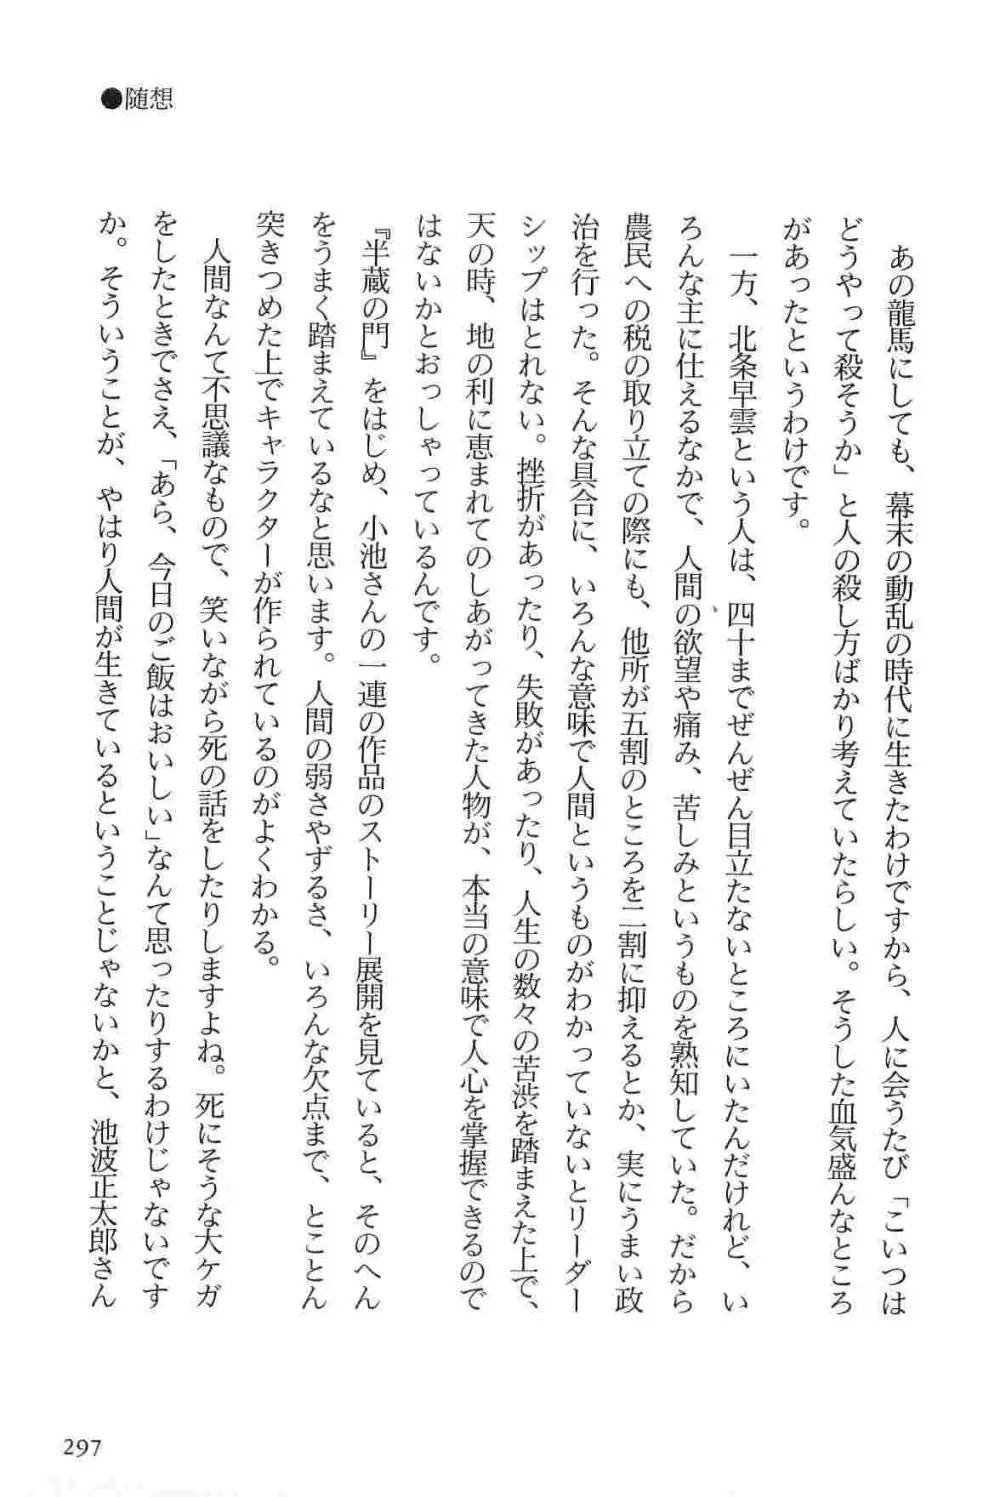 ●随想
　あの龍馬にしても、幕末の動乱の時代に生きたわけですから、人に会うたび「こいつは
どうやって殺そうか」と人の殺し方ばかり考えていたらしい。そうした血気盛んなところ
があったというわけです。
　一方、北条早雲という人は、四十までぜんぜん目立たないところにいたんだけれど、い
ろんな主に仕えるなかで、人間の欲望や痛み、苦しみというものを熟知していた。だから
農民への税の取り立ての際にも、他所が五割のところを二割に抑えるとか、実にうまい政
治を行った。そんな具合に、いろんな意味で人間というものがわかっていないとリーダー
シップはとれない。挫折があったり、失敗があったり、人生の数々の苦渋を踏まえた上で、
天の時、地の利に恵まれてのしあがってきた人物が、本当の意味で人心を掌握できるので
はないかとおっしゃっているんです。
　『半蔵の門』をはじめ、小池さんの一連の作品のストーリー展開を見ていると、そのへん
をうまく踏まえているなと思います。人間の弱さやずるさ、いろんな欠点まで、とことん
突きつめた上でキャラクターが作られているのがよくわかる。
　人間なんて不思議なもので、笑いながら死の話をしたりしますよね。死にそうな大ケガ
をしたときでさえ、「あら、今日のご飯はおいしい」なんて思ったりするわけじゃないです
か。そういうことが、やはり人間が生きているということじゃないかと、池波正太郎さん
297